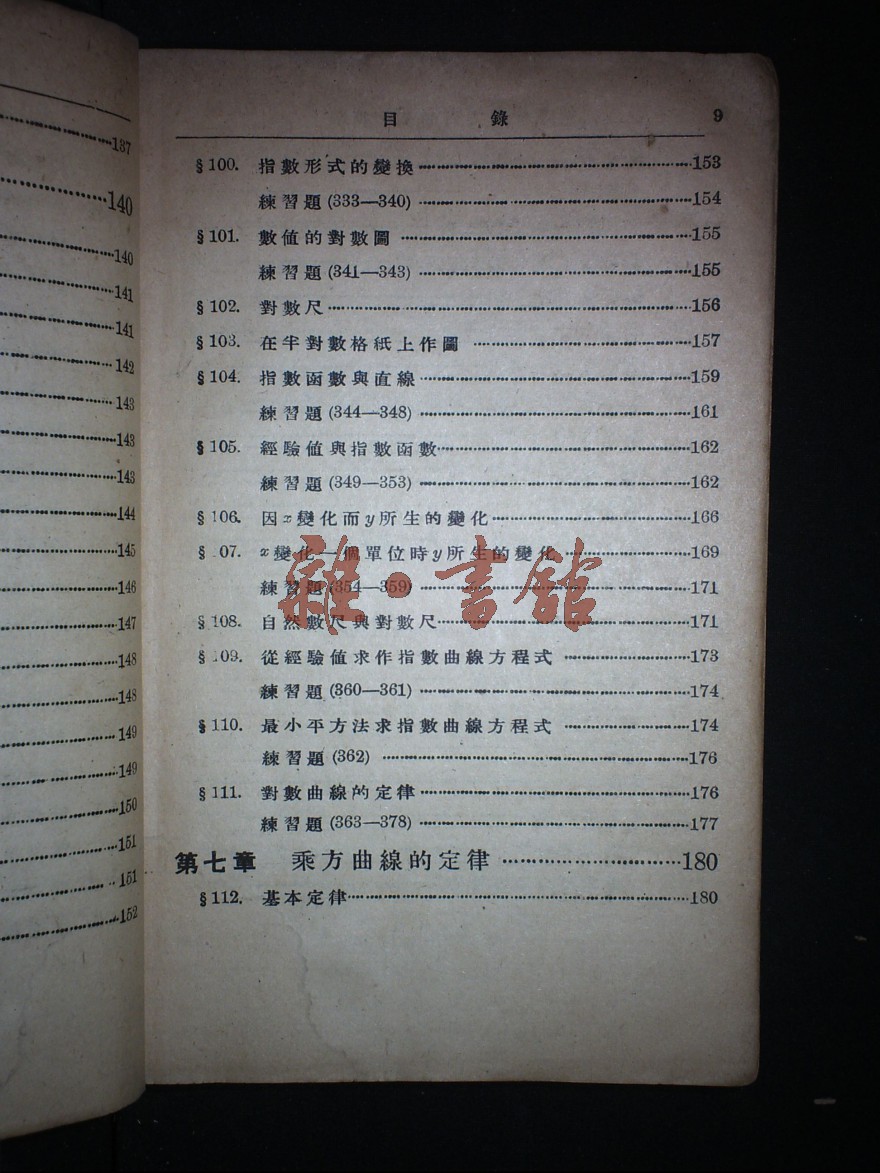 137
140
140
141
141
142
143
143
143
144
145
146
147
148
148
149
149
150
151
151
152
目 錄 9
§100. 指數形式的變換 153
練習題(333—340) 154
§101. 數値的對數圖 155
練習題(341—343) 155
§102. 對數尺 156
§103. 在半對數格紙上作圖 157
§104. 指數函數與直線 159
練習題(344—348) 161
§105. 經驗値與指數函數 162
練習題(349—353) 162
§106. 因x變化而y所生的變化 166
§107. x變化一個單位時y所生的變化 169
練習題(354—359) 171
§108. 自然數尺與對數尺 171
§109. 從經驗値求作指數曲線方程式 173
練習題(360—361) 174
§110. 最小平方法求指數曲線方程式 174
練習題(362) 176
§111. 對數曲線的定律 176
練習題(363—378) 177
第七章 乘方曲線的定律 180
§112. 基本定律 180
雜·書館